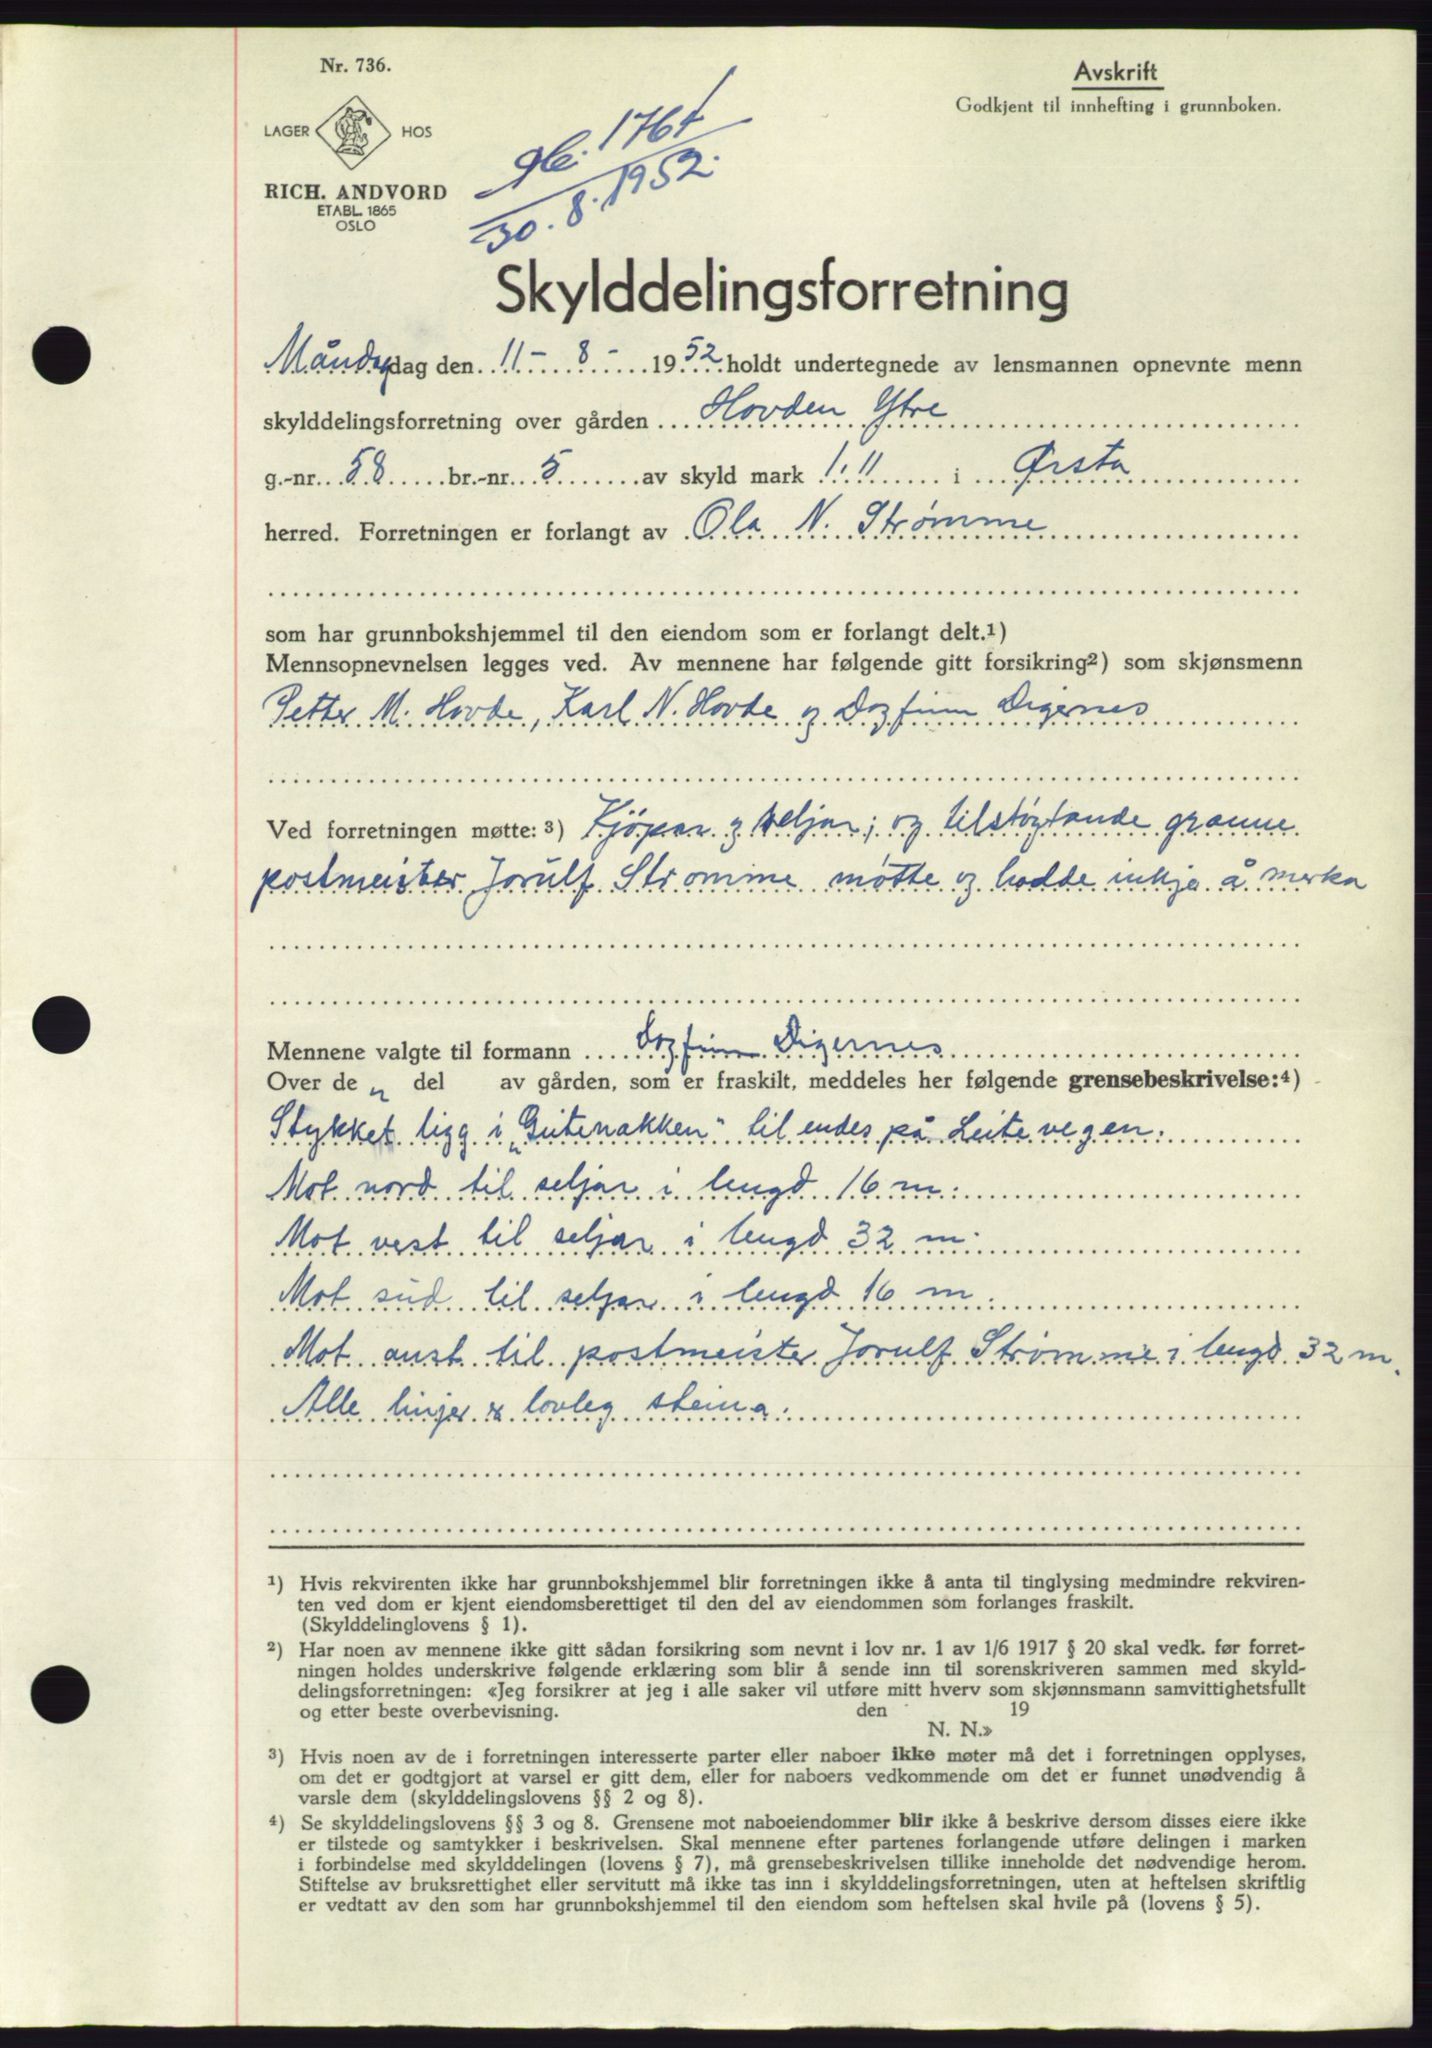 Nr. 736.
Avskrift
Godkjent til innhefting i grunnboken.
LAGER HOS
RICH. ANDVORD
ETABL. 1865
OSLO
1764
30.8.1952.
Skylddelingsforretning
Måndag dag den 11 - 8 - 1952 holdt undertegnede av lensmannen opnevnte menn
skylddelingsforretning over gården Hovden Ytre
g.-nr. 58 br.-nr. 5 av skyld mark 1.11 i Ørsta
herred. Forretningen er forlangt av Ola N. Strømme
som har grunnbokshjemmel til den eiendom som er forlangt delt.1)
Mennsopnevnelsen legges ved. Av mennene har følgende gitt forsikring2) som skjønsmenn
Petter M. Hovde, Karl N. Hovde og Dagfinn Digernes
Ved forretningen møtte: 3) Kjöpar og seljar; og tilstøytande granne
postmeister Jorulf Strømme møtte og hadde inkje å merka
Mennene valgte til formann Dagfinn Digernes
Over de n del av gården, som er fraskilt, meddeles her følgende grensebeskrivelse:4)
Stykket ligg i „Geitenakken" til endes på Leitevegen.
Mot nord til seljar i lengd 16 m.
Mot vest til seljar i lengd 32 m.
Mot sud til seljar i lengd 16 m.
Mot aust til postmeister Jorulf Strømme i lengd 32 m.
Alle linjer er lovleg steina.
1) Hvis rekvirenten ikke har grunnbokshjemmel blir forretningen ikke å anta til tinglysing medmindre rekviren-
ten ved dom er kjent eiendomsberettiget til den del av eiendommen som forlanges fraskilt.
(Skylddelinglovens § 1).
2) Har noen av mennene ikke gitt sådan forsikring som nevnt i lov nr. 1 av 1/6 1917 § 20 skal vedk. før forret-
ningen holdes underskrive følgende erklæring som blir å sende inn til sorenskriveren sammen med skyld-
delingsforretningen: «Jeg forsikrer at jeg i alle saker vil utføre mitt hverv som skjønnsmann samvittighetsfullt
og etter beste overbevisning. den 19
N. N.»
3) Hvis noen av de i forretningen interesserte parter eller naboer ikke møter må det i forretningen opplyses,
om det er godtgjort at varsel er gitt dem, eller for naboers vedkommende om det er funnet unødvendig å
varsle dem (skylddelingslovens §§ 2 og 8).
4) Se skylddelingslovens §§ 3 og 8. Grensene mot naboeiendommer blir ikke å beskrive dersom disses eiere ikke
er tilstede og samtykker i beskrivelsen. Skal mennene efter partenes forlangende utføre delingen i marken
i forbindelse med skylddelingen (lovens § 7), må grensebeskrivelsen tillike inneholde det nødvendige herom.
Stiftelse av bruksrettighet eller servitutt må ikke tas inn i skylddelingsforretningen, uten at heftelsen skriftlig
er vedtatt av den som har grunnbokshjemmel til den eiendom som heftelsen skal hvile på (lovens § 5).